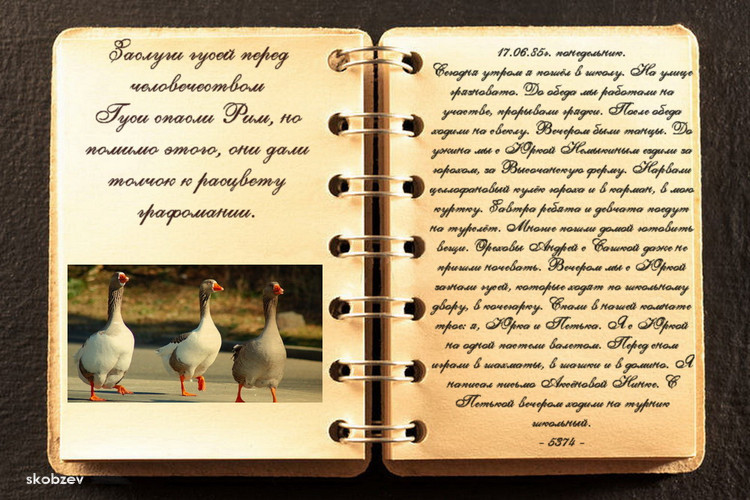 Заслуги гусей перед
человечеством
Гуси спасли Рим, но
помимо этого, они дали
толчок к расцвету
графомании.
17.06.85г. понедельник.
Сегодня утром я пошёл в школу. На улице
грязновато. До обеда мы работали на
участке, прорывали грядки. После обеда
ходили на свеклу. Вечером были танцы. До
ужина мы с Юркой Немыкиным ездили за
горохом, за Высочанскую ферму. Нарвали
целлофановый кулёк гороха и в карман, в мою
куртку. Завтра ребята и девчата поедут
на турслёт. Многие пошли домой готовить
вещи. Ореховы Андрей с Сашкой даже не
пришли ночевать. Вечером мы с Юркой
загнали гусей, которые ходят по школьному
двору, в кочегарку. Спали в нашей комнате
трое: я, Юрка и Петька. А с Юркой
на одной постели валетом. Перед сном
играли в шахматы, в шашки и в домино. Я
написал письмо Аксёновой Нинке. С
Петькой вечером ходили на турник
школьный.
- 5374 -
skobzev